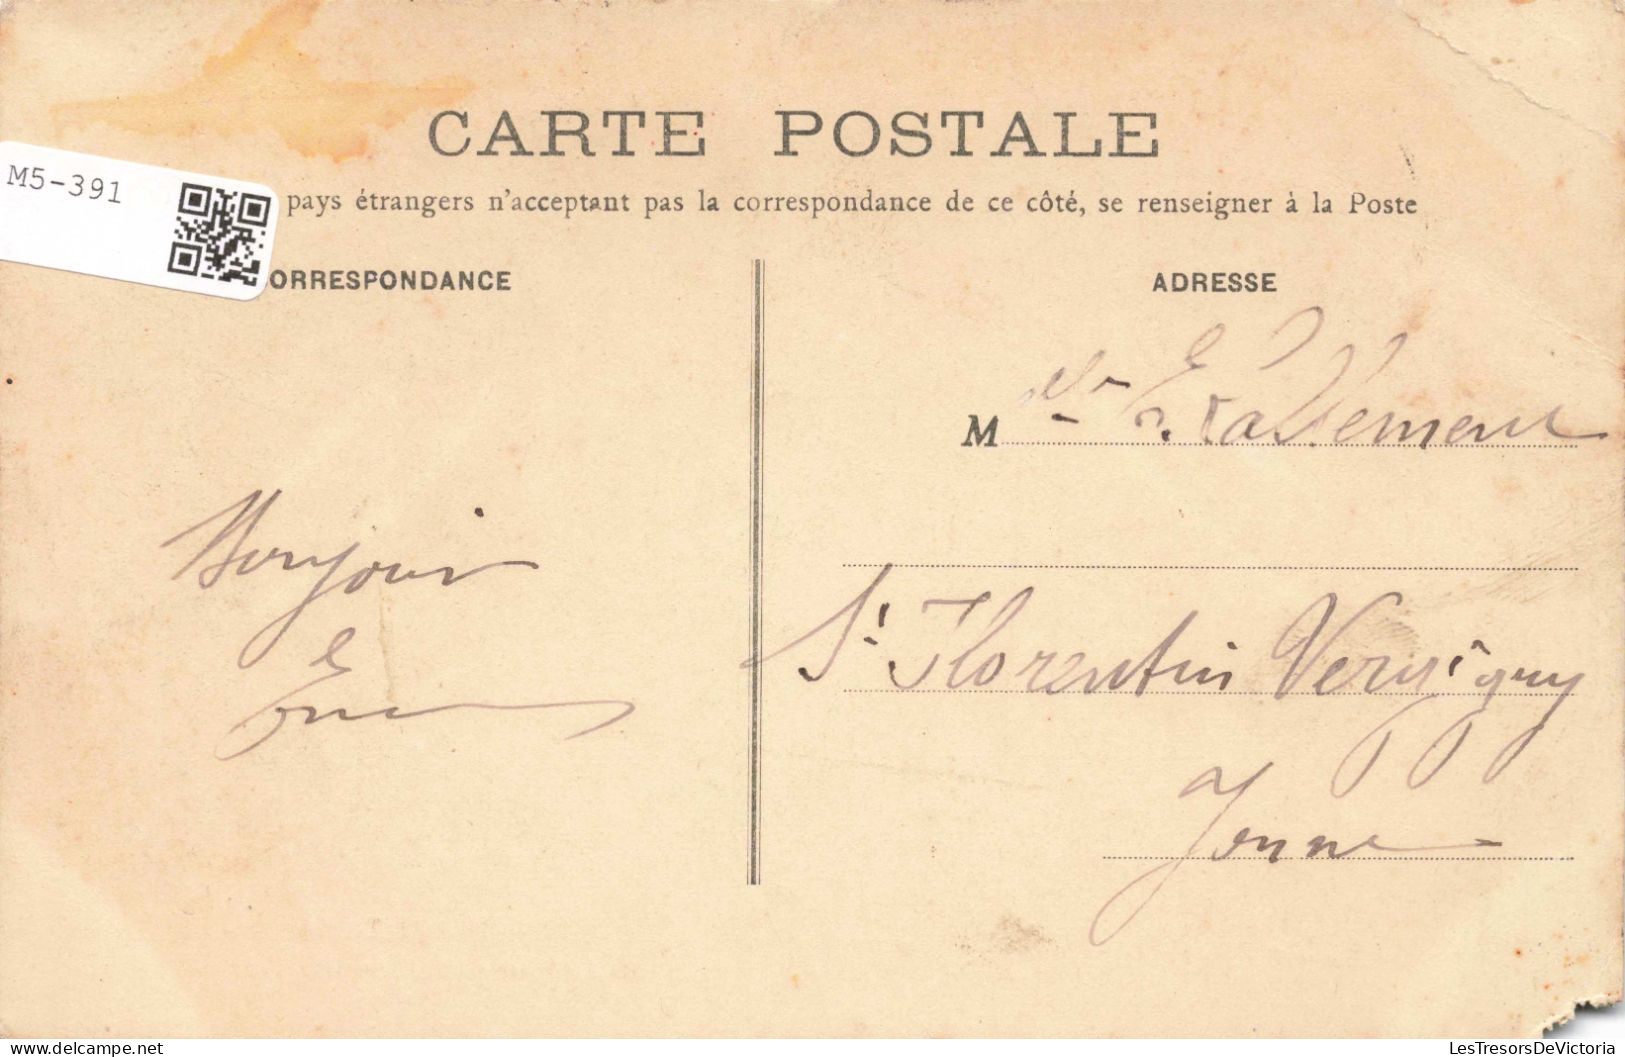 CARTE POSTALE
M5-391
pays étrangers n'acceptant pas la correspondance de ce côté, se renseigner à la Poste
ORRESPONDANCE
ADRESSE
M E. Lallement
Bonjour
St Florentin Vergigny
Yonne
LesTresorsDeVictoria